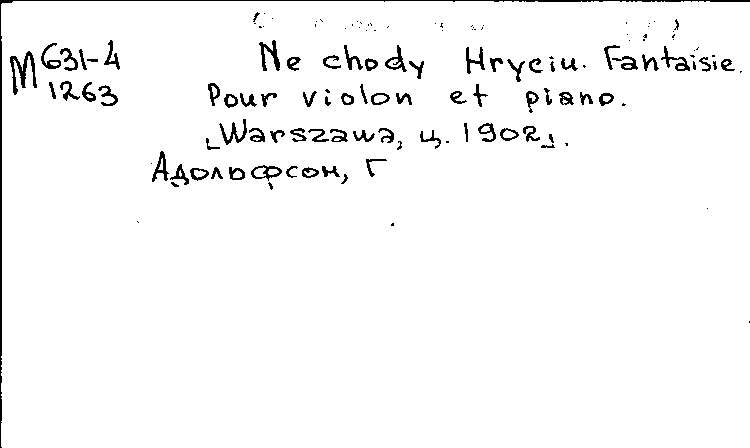 M 631-4
1263
Ne chody Hryciu. Fantaisie.
Pour violon et piano.
[Warszawa, ц. 1902].
Адольфсон, Г